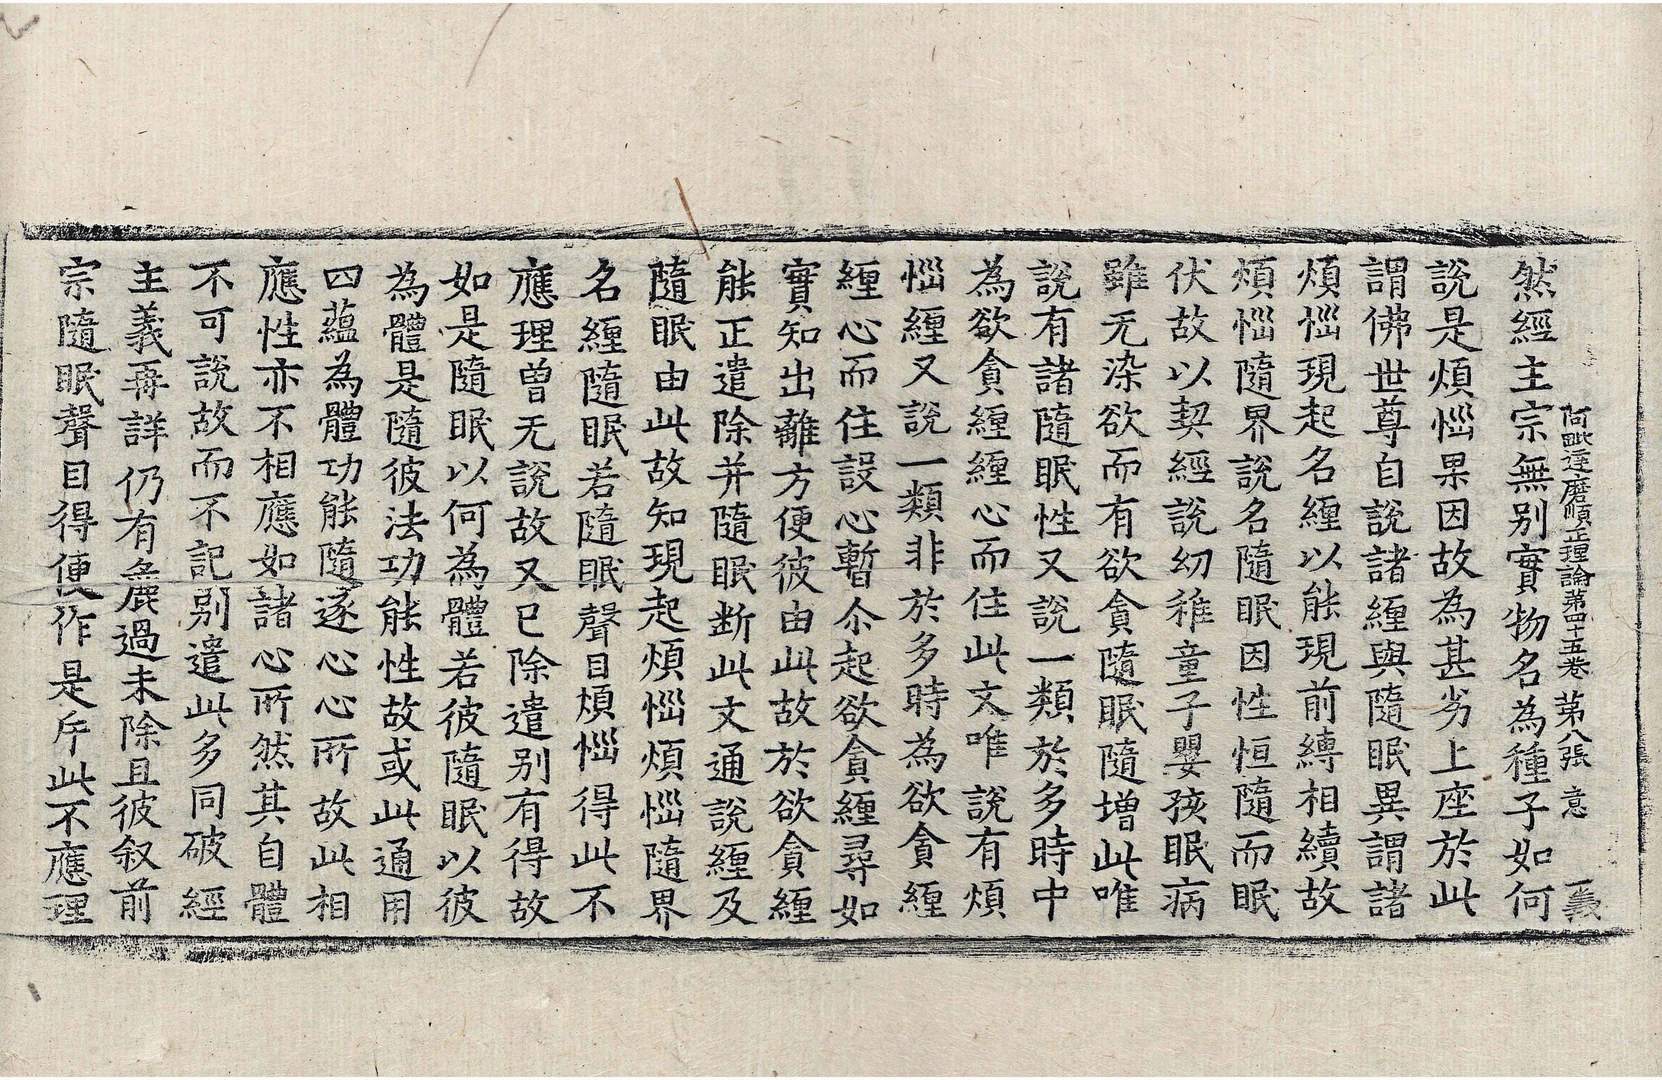 阿毗達磨順正理論第四十五卷 第八張 意 一義
然經主宗無別實物名為種子如何
說是煩惱果因故為甚劣上座於此
謂佛世尊自說諸纏與隨眠異謂諸
煩惱現起名纏以能現前縛相續故
煩惱隨界說名隨眠因性恒隨而眠
伏故以契經說幼稚童子嬰孩眠病
雖无染欲而有欲貪隨眠隨增此唯
說有諸隨眠性又說一類於多時中
為欲貪纏纏心而住此文唯說有煩
惱纏又說一類非於多時為欲貪纏
纏心而住設心暫尒起欲貪纏尋如
實知出離方便彼由此故於欲貪纏
能正遣除并隨眠断此文通說纏及
隨眠由此故知現起煩惱煩惱隨界
名纏隨眠若隨眠聲目煩惱得此不
應理曾无說故又已除遣別有得故
如是隨眠以何為體若彼隨眠以彼
為體是隨彼法功能性故或此通用
四蘊為體功能隨逐心心所故此相
應性亦不相應如諸心所然其自體
不可說故而不記別遣此多同破經
主義再詳仍有麁過未除且彼叙前
宗隨眠聲目得便作是斥此不應理